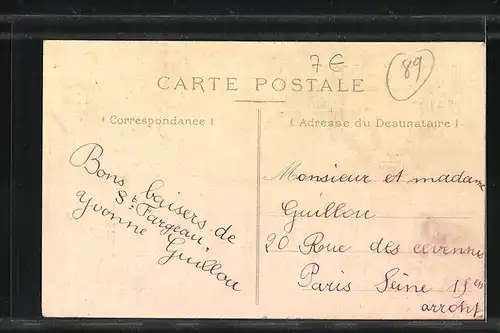 7€
89
CARTE POSTALE
( Correspondance )
( Adresse du Destinataire )
Bons baisers de
St Fargeau.
Yvonne Guillou
Monsieur et madame
Guillou
20 Rue des cevennes
Paris Seine 15em
arrond